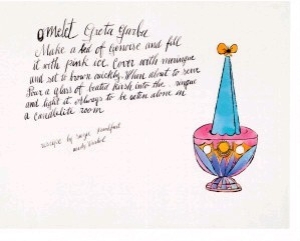 omelet Greta Garbo
Make a bed of Genoise and fill
it with pink ice. Cover with meringue
and set to brown quickly. When about to serve
Pour a glass of heated kirsh into the meringue
and light it. Always to be eaten alone in
a candlelite room
recipe by Suzie Frankfurt
Andy Warhol